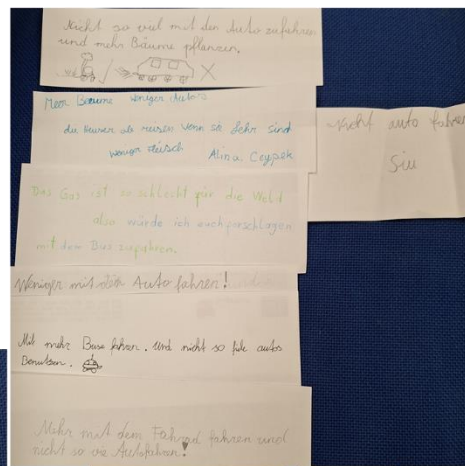 Nicht so viel mit den Auto zufahren
und mehr Bäume pflanzen.
Meer Bäume weniger Autos
weniger
Alina
nicht auto fahren
Siu
Das Gas ist so schlecht für die Weld
also würde ich euch forschlagen
mit dem Bus zufahren.
Weniger mit dem Auto fahren!
Mit mehr Buse fahren. Und nicht so file autos
Benutzen.
Mehr mit dem Fahrad fahren und
nicht so vie Autofahren!